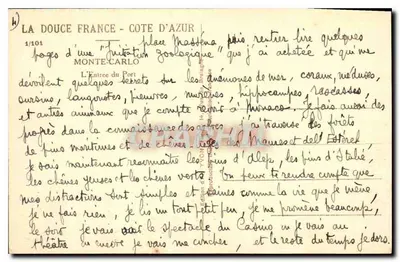 LA DOUCE FRANCE - COTE D'AZUR
1/101
place Masséna puis rentrer lire quelques
pages d'une "initiation zoologique" que j'ai achetée et qui me
MONTE-CARLO
L'Entrée du Port
dévoilent quelques secrets sur les anémones de mer, coraux, méduses,
oursins, langoustes, pieuvres, murènes, hippocampes, rascasses,
et autres animaux que je compte revoir à Monaco. Je fais aussi des
progrès dans la connaissance des arbres. à traverse les forêts
de pins maritimes et de chênes des Maures et de l'Estérel,
je sais maintenant reconnaître les pins d'Alep, les pins d'Italie,
les chênes yeuses et les chênes verts. On peut te rendre compte que
mes distractions sont simples et saines comme la vie que je mène,
je ne fais rien, je lis un tout petit peu, je me promène beaucoup,
le soir je vais au spectacle du Casino ou je vais au
théâtre ou encore je vais me coucher, et le reste du temps je dors.